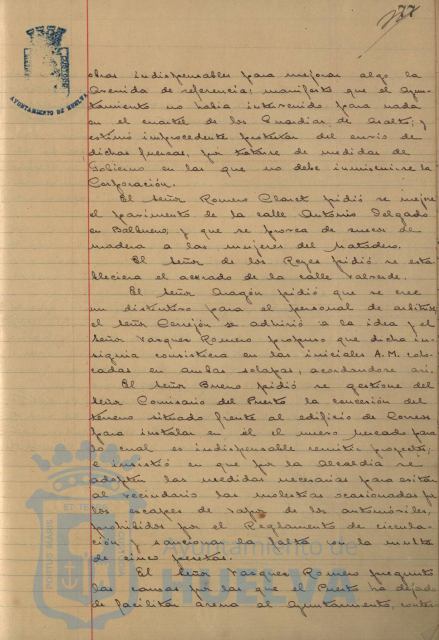 177
AYUNTAMIENTO DE HUELVA
obras indispensables para mejorar algo la
Avenida de referencia; manifestó que el Ayun-
tamiento no había intervenido para nada
en el cuartel de los Guardias de Asalto; y
estimó improcedente protestar del envío de
dichas fuerzas, por tratarse de medidas de
Gobierno en las que no debe inmiscuirse la
Corporación.
El Señor Romero Claret pidió se mejore
el pavimento de la calle Antonio Delgado
en Balbueno, y que se provea de zuecos de
madera a las mujeres del Matadero.
El Señor de los Reyes pidió se esta-
bleciera el acerado de la calle Valverde.
El Señor Aragón pidió que se cree
un distintivo para el personal de arbitrios;
el Señor Cerejón se adhirió a la idea y el
Señor Vasques Romero propuso que dicha in-
signia consistiera en las iniciales A.M. colo-
cadas en ambas solapas, acordándose así.
El Señor Bueno pidió se gestione del
Señor Comisario del Puerto la concesión del
terreno situado frente al edificio de Correos
para instalar en él el nuevo mercado para
lo cual es indispensable remitir proyecto;
e insistió en que por la Alcaldía se
adopten las medidas necesarias para evitar
al vecindario las molestias ocasionadas por
los escapes de vapor de los automóviles,
prohibidos por el Reglamento de circula-
ción y sancionar la falta con la multa
de cinco pesetas.
El Señor Vasques Romero preguntó
las causas por las que el Puerto ha dejado
de facilitar arena al Ayuntamiento, contes-
Ayuntamiento de
HUELVA